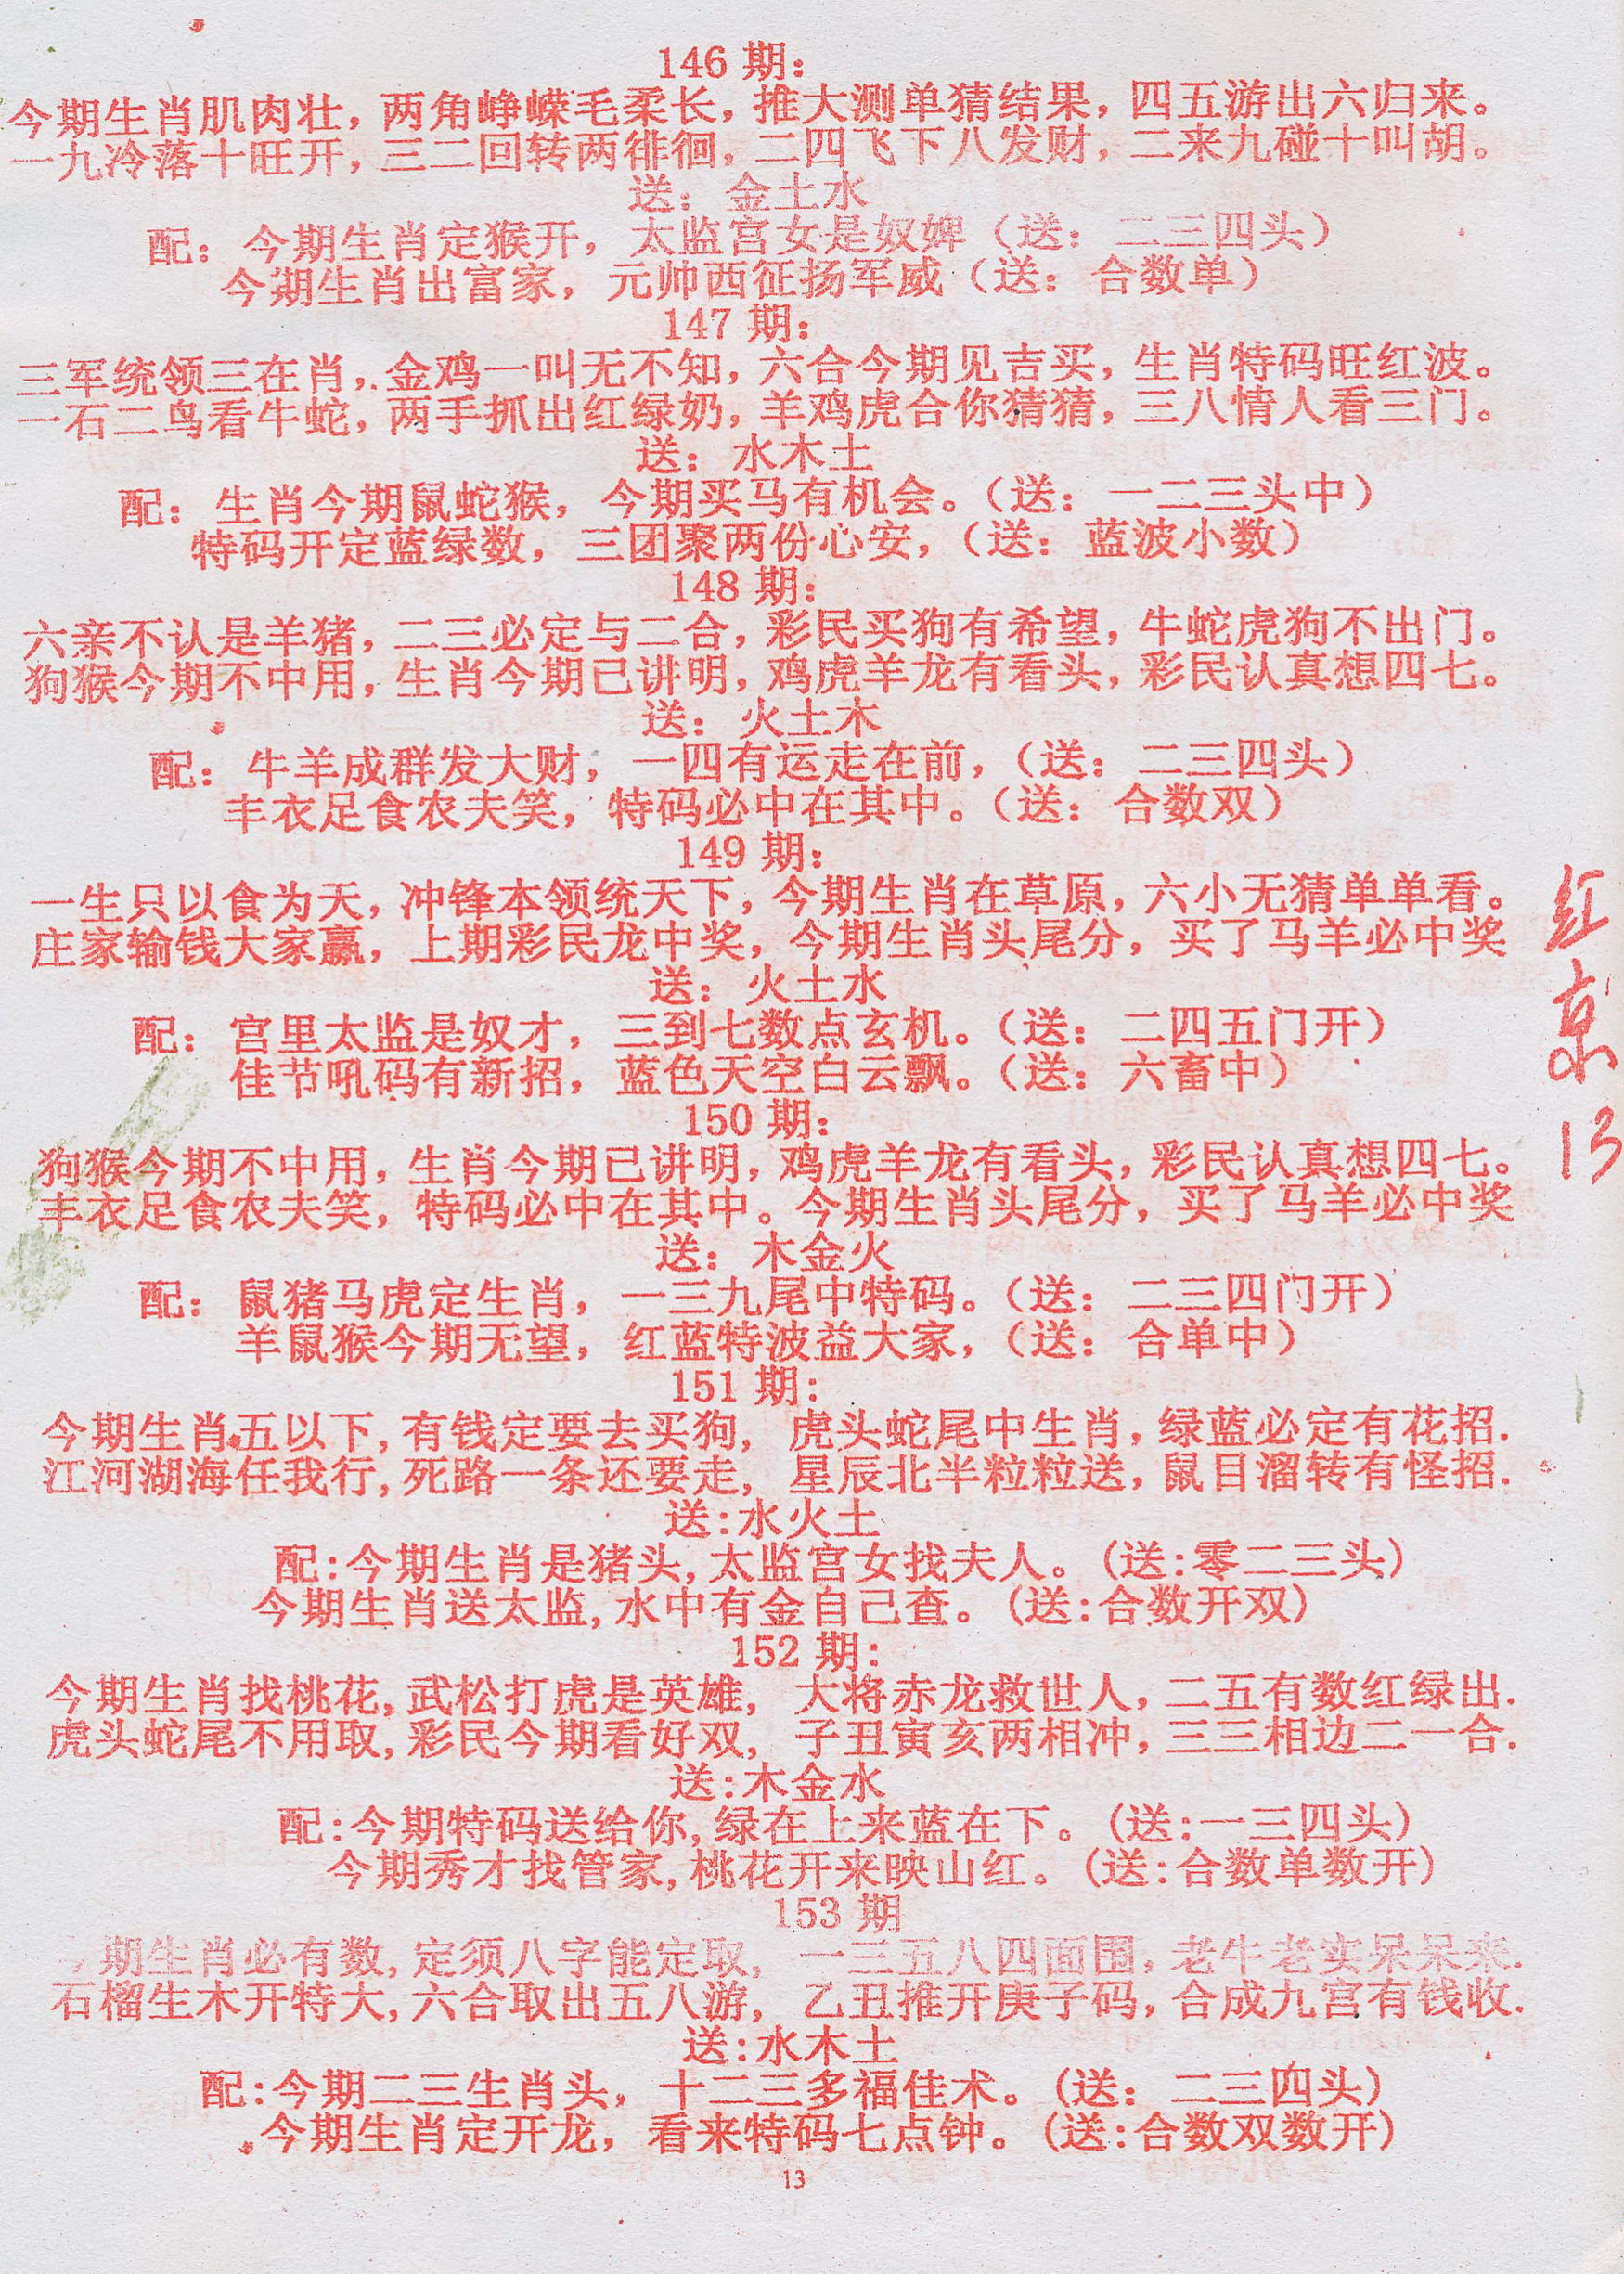 146 期:
今期生肖肌肉壮，两角峥嵘毛柔长，推大测单猜结果，四五游出六归来。
一九冷落十旺开，三二回转两徘徊，二四飞下八发财，二来九碰十叫胡。
送：金土水
配：今期生肖定猴开，太监宫女是奴婢（送：二三四头）
今期生肖出富家，元帅西征扬军威（送：合数单）
147 期:
三军统领三在肖，金鸡一叫无不知，六合今期见吉买，生肖特码旺红波。
一石二鸟看牛蛇，两手抓出红绿奶，羊鸡虎合你猜猜，三八情人看三门。
送：水木土
配：生肖今期鼠蛇猴，今期买马有机会。（送：一二三头中）
特码开定蓝绿数，三团聚两份心安，（送：蓝波小数）
148 期:
六亲不认是羊猪，二三必定与二合，彩民买狗有希望，牛蛇虎狗不出门。
狗猴今期不中用，生肖今期已讲明，鸡虎羊龙有看头，彩民认真想四七。
送：火土木
配：牛羊成群发大财，一四有运走在前，（送：二三四头）
丰衣足食农夫笑，特码必中在其中。（送：合数双）
149 期:
一生只以食为天，冲锋本领统天下，今期生肖在草原，六小无猜单单看。
庄家输钱大家赢，上期彩民龙中奖，今期生肖头尾分，买了马羊必中奖
送：火土水
配：宫里太监是奴才，三到七数点玄机。（送：二四五门开）
佳节吼码有新招，蓝色天空白云飘。（送：六畜中）
150 期:
狗猴今期不中用，生肖今期已讲明，鸡虎羊龙有看头，彩民认真想四七。
丰衣足食农夫笑，特码必中在其中。今期生肖头尾分，买了马羊必中奖
送：木金火
配：鼠猪马虎定生肖，一三九尾中特码。（送：二三四门开）
羊鼠猴今期无望，红蓝特波益大家，（送：合单中）
151 期:
今期生肖五以下,有钱定要去买狗， 虎头蛇尾中生肖，绿蓝必定有花招.
江河湖海任我行,死路一条还要走， 星辰北半粒粒送，鼠目溜转有怪招.
送:水火土
配:今期生肖是猪头,太监宫女找夫人。(送:零二三头)
今期生肖送太监,水中有金自己查。(送:合数开双)
152 期:
今期生肖找桃花,武松打虎是英雄， 大将赤龙救世人，二五有数红绿出.
虎头蛇尾不用取,彩民今期看好双， 子丑寅亥两相冲，三三相边二一合.
送:木金水
配:今期特码送给你,绿在上来蓝在下。(送:一三四头)
今期秀才找管家,桃花开来映山红。(送:合数单数开)
153 期
期生肖必有数,定须八字能定取， 一三五八四面围，老牛老实呆呆来.
石榴生木开特大,六合取出五八游， 乙丑推开庚子码，合成九宫有钱收.
送:水木土
配:今期二三生肖头，十二三多福佳术。(送：二三四头)
今期生肖定开龙，看来特码七点钟。(送:合数双数开)
13
红
京
13